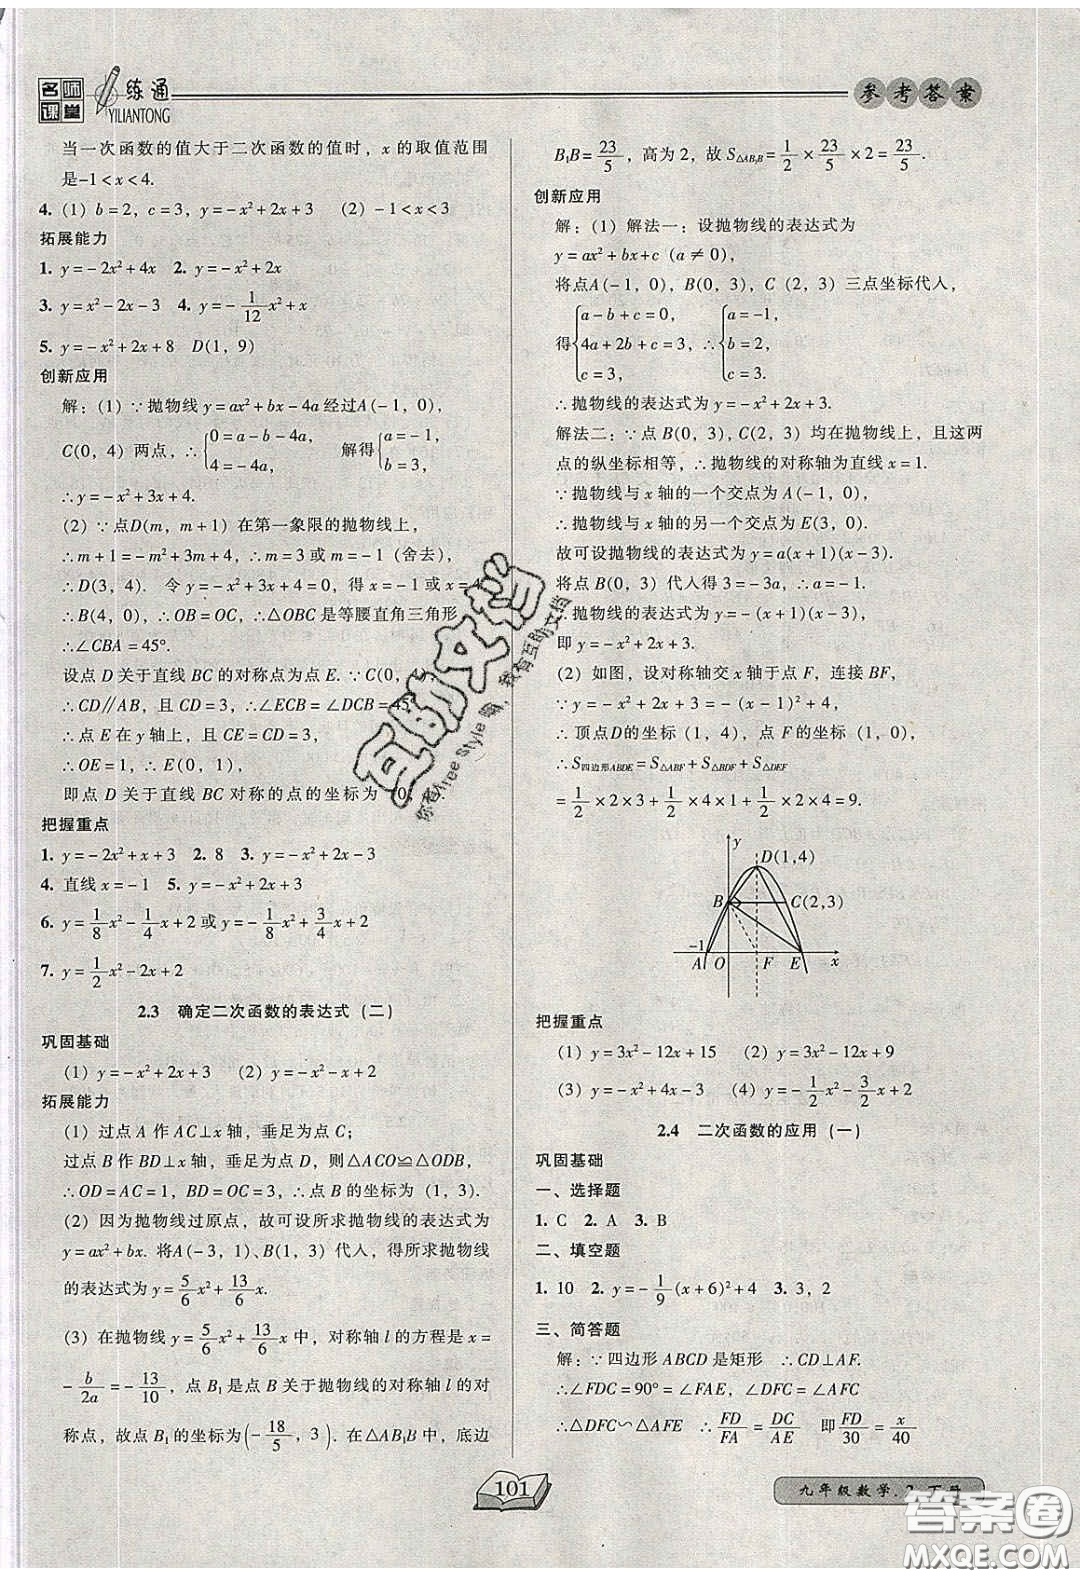 名师课堂
一练通
YILIANTONG
参考答案
当一次函数的值大于二次函数的值时，x 的取值范围
是-1<x<4.
4. (1) b=2，c=3，y=-x²+2x+3 (2) -1<x<3
拓展能力
1. y=-2x²+4x 2. y=-x²+2x
3. y=x²-2x-3 4. y=-1/12x²+x
5. y=-x²+2x+8 D(1，9)
创新应用
解：(1) ∵抛物线 y=ax²+bx-4a 经过A(-1，0)，
C(0，4) 两点，∴{0=a-b-4a， 4=-4a， 解得{a=-1， b=3，
∴y=-x²+3x+4.
(2) ∵点D(m，m+1) 在第一象限的抛物线上，
∴m+1=-m²+3m+4，∴m=3或m=-1 (舍去)，
∴D(3，4). 令 y=-x²+3x+4=0，得 x=-1或 x=4
∴B(4，0)，∴OB=OC，∴△OBC是等腰直角三角形
∴∠CBA=45°.
设点 D 关于直线 BC 的对称点为点 E. ∵C(0，
∴CD∥AB，且 CD=3，∴∠ECB=∠DCB=45°
∴点 E 在 y 轴上，且 CE=CD=3，
∴OE=1，∴E(0，1)
即点 D 关于直线 BC 对称的点的坐标为 (0，
把握重点
1. y=-2x²+x+3 2. 8 3. y=-x²+2x-3
4. 直线 x=-1 5. y=-x²+2x+3
6. y=1/8x²-1/4x+2 或 y=-1/8x²+3/4x+2
7. y=1/2x²-2x+2
2.3 确定二次函数的表达式 (二)
巩固基础
(1) y=-x²+2x+3 (2) y=-x²+2
拓展能力
(1) 过点 A 作 AC⊥x 轴，垂足为点 C；
过点 B 作 BD⊥x 轴，垂足为点 D，则△ACO≌△ODB，
∴OD=AC=1，BD=OC=3，∴点 B 的坐标为 (1，3).
(2) 因为抛物线过原点，故可设所求抛物线的表达式为
y=ax²+bx. 将A(-3，1)、B(1，3) 代人，得所求抛物线
的表达式为 y=5/6x²+13/6x.
(3) 在抛物线 y=5/6x²+13/6x 中，对称轴 l 的方程是 x=
-b/2a=-13/10，点 B₁是点 B 关于抛物线的对称轴 l 的对
称点，故点 B₁ 的坐标为(-18/5，3). 在△AB₁B 中，底边
B₁B=23/5，高为 2，故 S△AB₁B=1/2×23/5×2=23/5.
创新应用
解：(1) 解法一：设抛物线的表达式为
y=ax²+bx+c (a≠0)，
将点A(-1，0)，B(0，3)，C (2，3) 三点坐标代人，
得{a-b+c=0， 4a+2b+c=3， c=3， ∴{a=-1， b=2， c=3.
∴抛物线的表达式为 y=-x²+2x+3.
解法二：∵点 B(0，3)，C(2，3) 均在抛物线上，且这两
点的纵坐标相等，∴抛物线的对称轴为直线 x=1.
∵抛物线与 x 轴的一个交点为 A(-1，0)，
∴抛物线与 x 轴的另一个交点为 E(3，0).
故可设抛物线的表达式为 y=a(x+1)(x-3).
将点 B(0，3) 代人得 3=-3a，∴a=-1，
∴抛物线的表达式为 y=-(x+1)(x-3)，
即 y=-x²+2x+3.
(2) 如图，设对称轴交 x 轴于点 F，连接 BF，
∵y=-x²+2x+3=-(x-1)²+4，
∴顶点D的坐标 (1，4)，点 F 的坐标 (1，0)，
∴S四边形ABDE=S△ABF+S△BDF+S△DEF
=1/2×2×3+1/2×4×1+1/2×2×4=9.
y
D(1,4)
B
C(2,3)
-1
A O F E x
把握重点
(1) y=3x²-12x+15 (2) y=x²-12x+9
(3) y=-x²+4x-3 (4) y=-1/2x²-3/2x+2
2.4 二次函数的应用 (一)
巩固基础
一、选择题
1. C 2. A 3. B
二、填空题
1. 10 2. y=-1/9(x+6)²+4 3. 3，2
三、简答题
解：∵四边形 ABCD 是矩形 ∴CD⊥AF.
∴∠FDC=90°=∠FAE，∠DFC=∠AFC
∴△DFC∽△AFE ∴FD/FA=DC/AE 即FD/30=x/40
101
九年级数学.2 下册
互助文档
你有Free Style 嘴，我有互助文档
答案圈
MXQE.COM